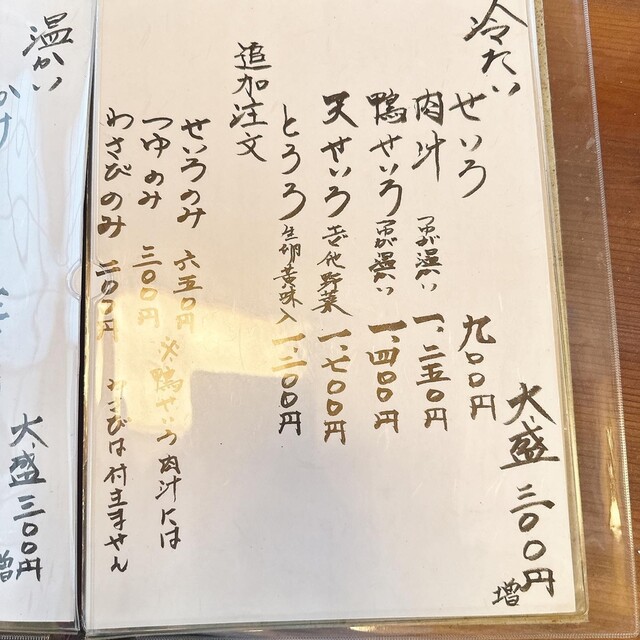 冷たい
せいろ 九〇〇円
肉汁 つゆが温かい 一、二五〇円
鴨せいろ つゆが温かい 一、四〇〇円
天せいろ 吉他野菜 一、七〇〇円
とろろ 生卵黄味入 一、二〇〇円
大盛 三〇〇円 増
追加注文
せいろのみ 六五〇円
つゆのみ 三〇〇円
わさびのみ 二〇〇円
※鴨せいろ 肉汁には
わさびは付きません
温かい
かけ
大盛 三〇〇円 増